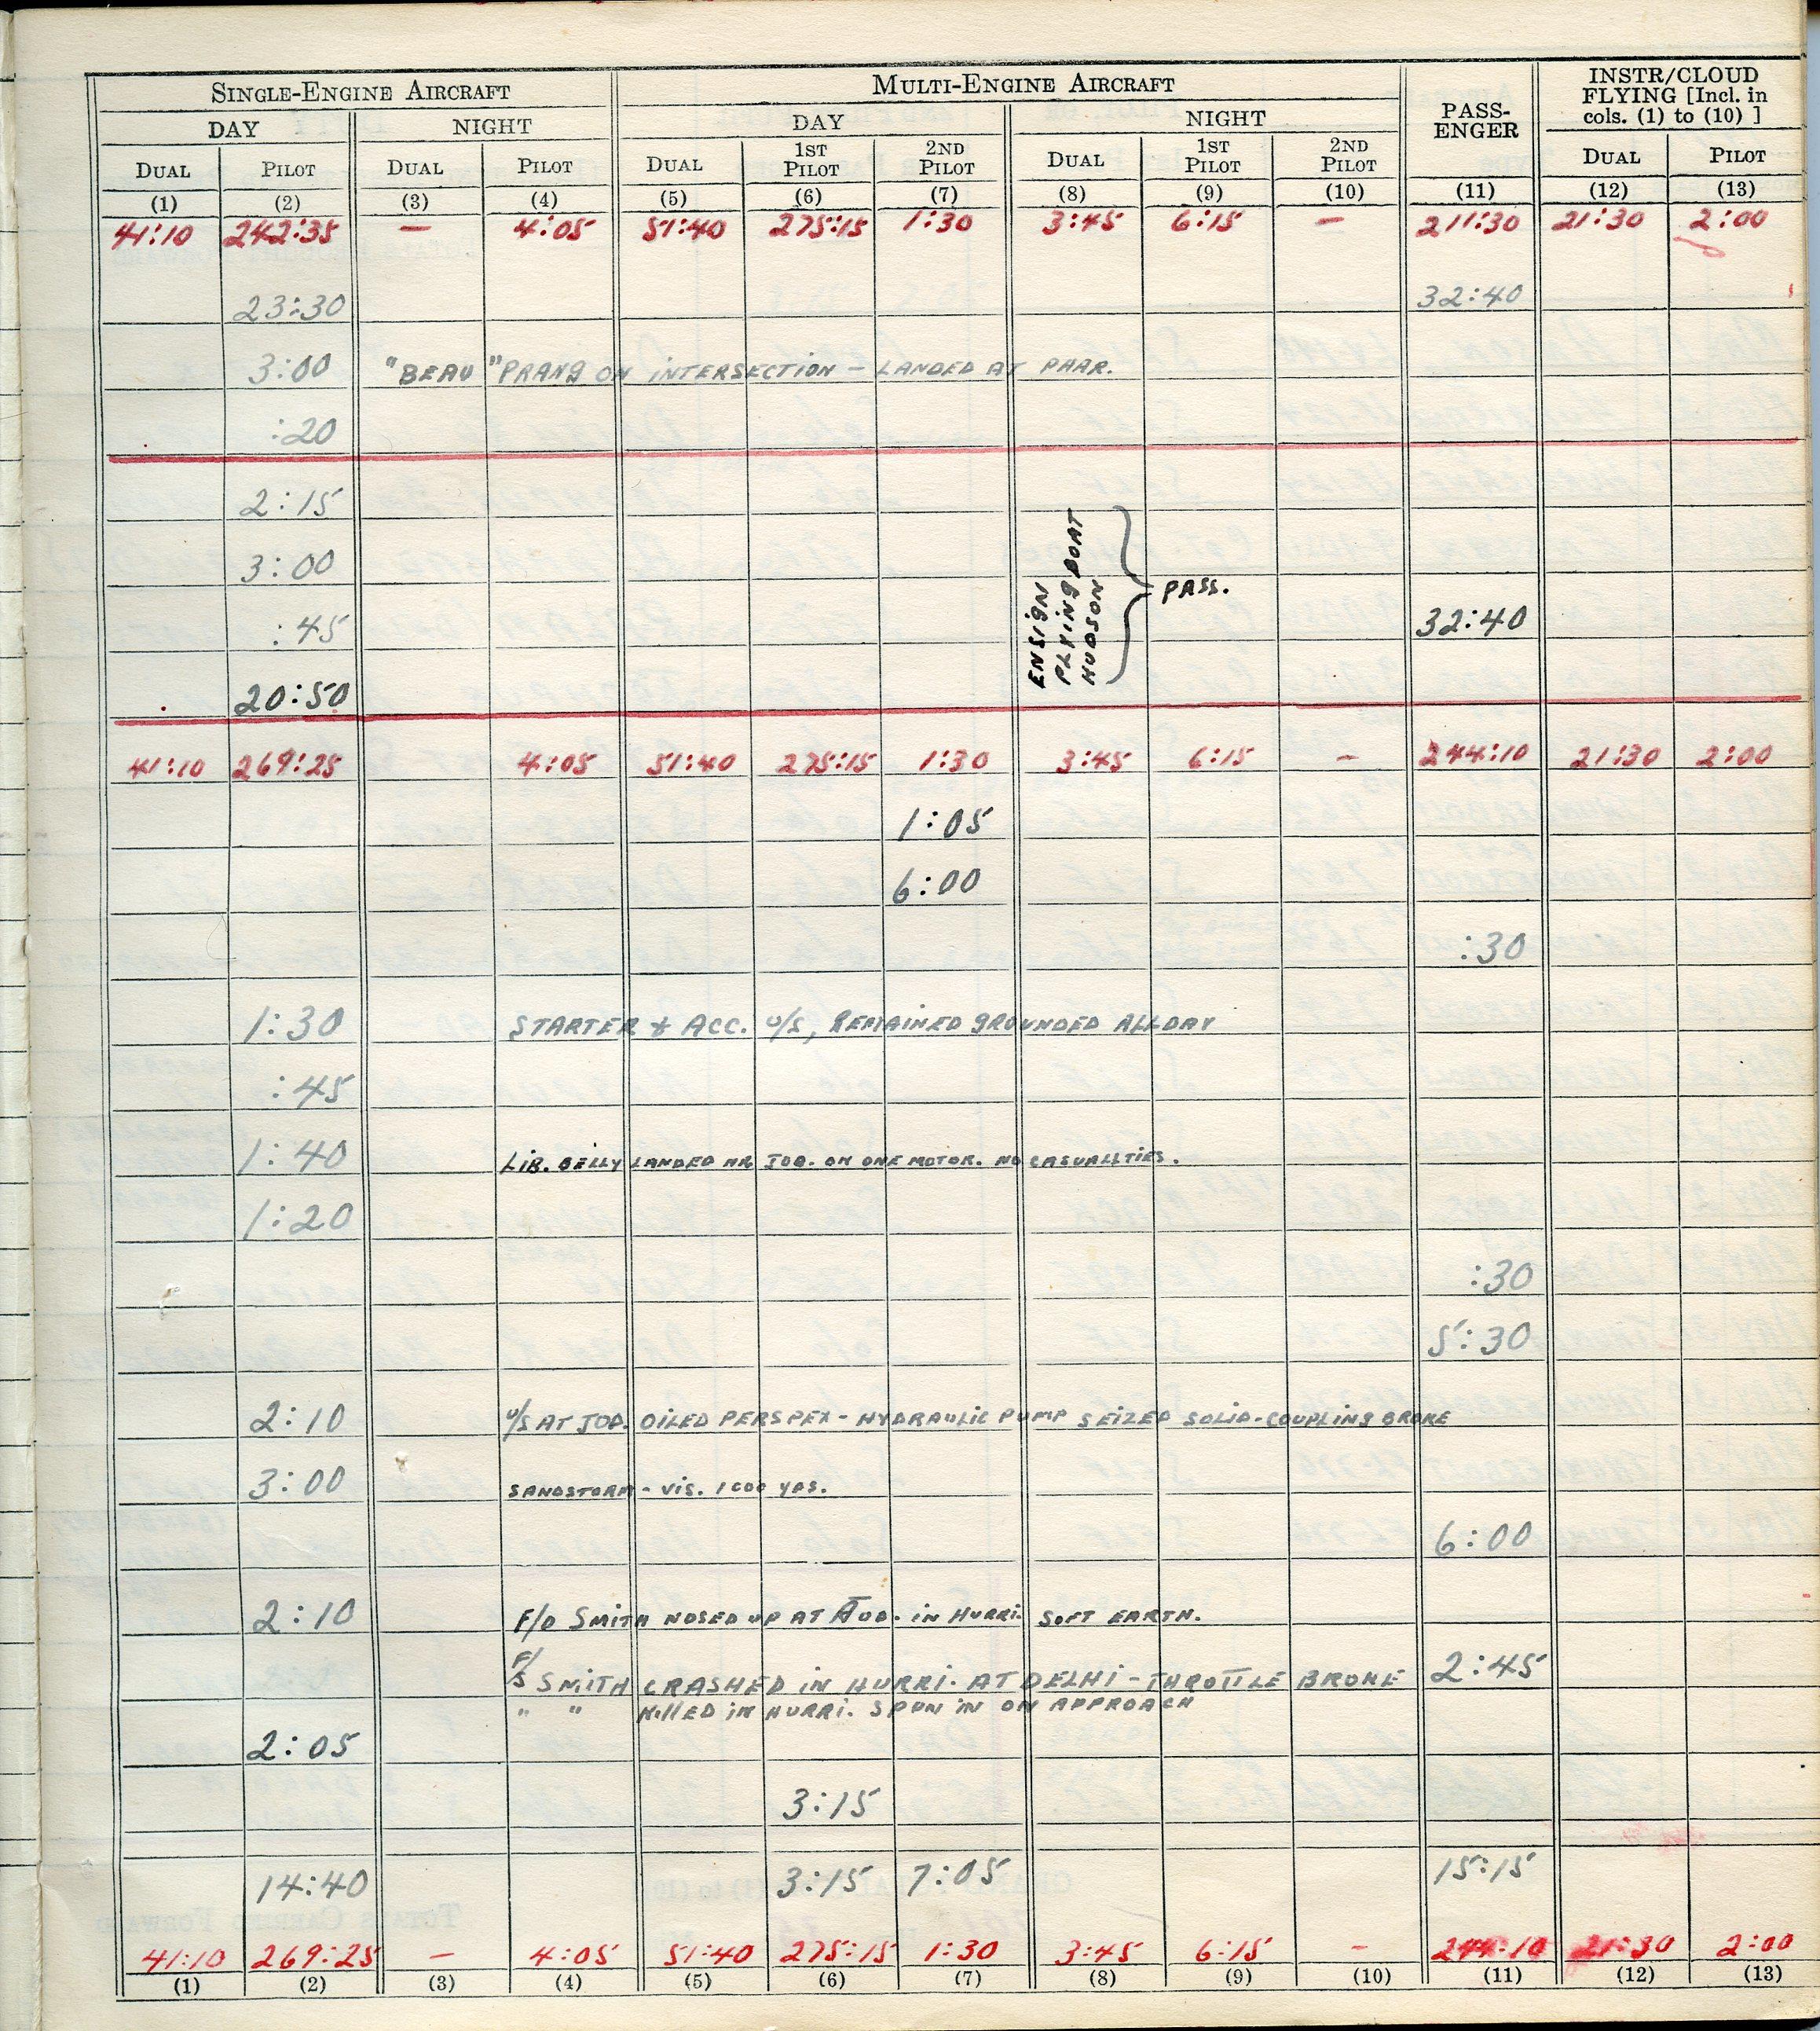 SINGLE-ENGINE AIRCRAFT MULTI-ENGINE AIRCRAFT PASS-ENGER INSTR/CLOUD FLYING [Incl. in cols. (1) to (10) ]
DAY NIGHT DAY NIGHT
DUAL PILOT DUAL PILOT DUAL 1ST PILOT 2ND PILOT DUAL 1ST PILOT 2ND PILOT DUAL PILOT
(1) (2) (3) (4) (5) (6) (7) (8) (9) (10) (11) (12) (13)
41:10 242:35 — 4:05 51:40 275:15 1:30 3:45 6:15 — 211:30 21:30 2:00
23:30 32:40
3:00 "BEAU" PRANG ON INTERSECTION — LANDED AT PHAR.
:20
2:15
3:00
ENSIGN
FLYING BOAT
HUDSON
PASS.
:45 32:40
20:50
41:10 269:25 4:05 51:40 275:15 1:30 3:45 6:15 — 244:10 21:30 2:00
1:05
6:00
:30
1:30 STARTER & ACC. U/S, REMAINED GROUNDED ALL DAY
:45
1:40 LIB. BELLY LANDED NR JOD. ON ONE MOTOR. NO CASUALLTIES.
1:20
:30
5:30
2:10 U/S AT JOD. OILED PERSPEX - HYDRAULIC PUMP SEIZED SOLID - COUPLING BROKE
3:00 SANDSTORM - VIS. 1000 YDS.
6:00
2:10 F/O SMITH NOSED UP AT AUD. IN HURRI. SOFT EARTH.
F/S SMITH CRASHED IN HURRI. AT DELHI - THROTTLE BROKE 2:45
" " KILLED IN HURRI. SPUN IN ON APPROACH
2:05
3:15
14:40 3:15 7:05 15:15
41:10 269:25 — 4:05 51:40 275:15 1:30 3:45 6:15 — 244:10 21:30 2:00
(1) (2) (3) (4) (5) (6) (7) (8) (9) (10) (11) (12) (13)